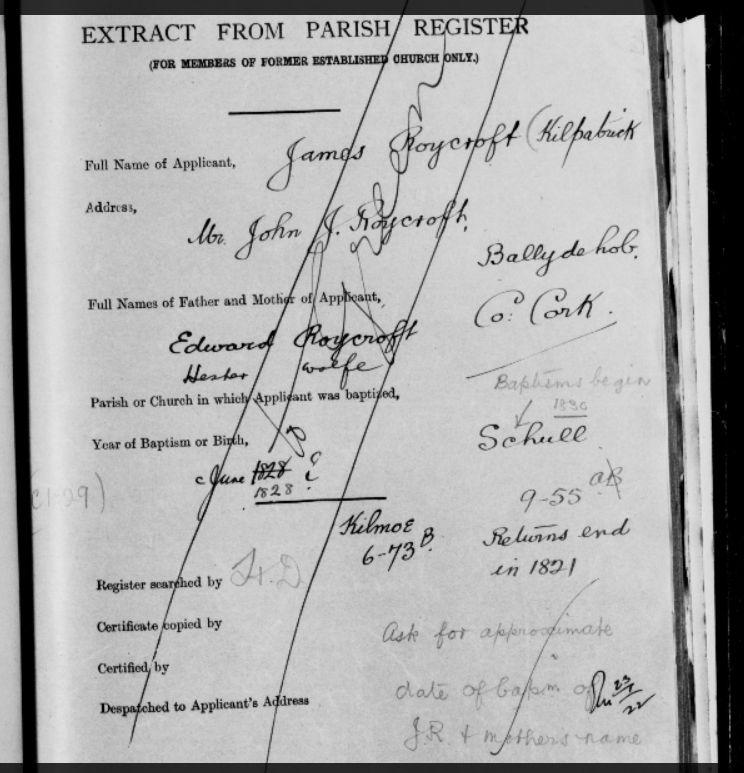 EXTRACT FROM PARISH REGISTER
(FOR MEMBERS OF FORMER ESTABLISHED CHURCH ONLY.)
Full Name of Applicant,
James Roycroft (Kilpatrick
Address,
Mr. John J. Roycroft,
Ballydehob.
Co: Cork.
Full Names of Father and Mother of Applicant,
Edward Roycroft
Hester Wolfe
Parish or Church in which Applicant was baptized,
Baptisms begin
1830
Schull
Year of Baptism or Birth,
c June 1828 ?
1828
9-55
Kilmoe
6-73 B.
Returns end
in 1821
Register searched by
Certificate copied by
Certified by
Despatched to Applicant's Address
Ask for approximate
date of bapm of
J.R. + mothers name